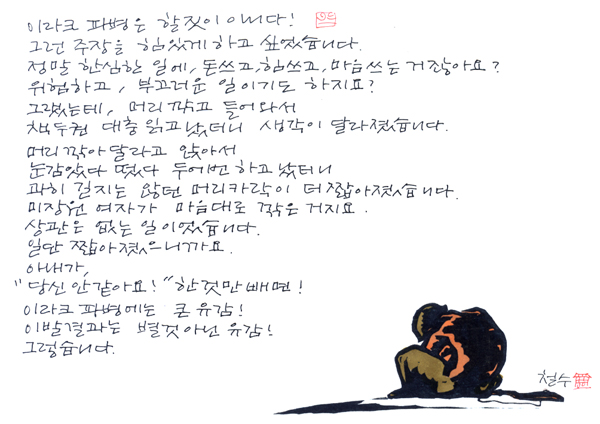 이라크 파병은 할짓이 아니다!
그런 주장을 힘있게 하고 싶었습니다.
정말 한심한 일에, 돈쓰고, 힘쓰고, 마음쓰는 거잖아요?
위험하고, 부끄러운 일이기도 하지요?
그랬는데, 머리 깎고 들어와서
책두권 대충 읽고 났더니 생각이 달라졌습니다.
머리깎아 달라고 앉아서
눈감았다 떴다 두어번 하고 났더니
과히 길지는 않던 머리카락이 더 짧아졌습니다.
미장원 여자가 마음대로 깎은 거지요.
상관은 없는 일이었습니다.
일단 짧아졌으니까요.
아내가,
"당신 안같아요!" 한 것만 빼면!
이라크 파병에는 큰 유감!
이발결과는 별것 아닌 유감!
그렇습니다.
철수